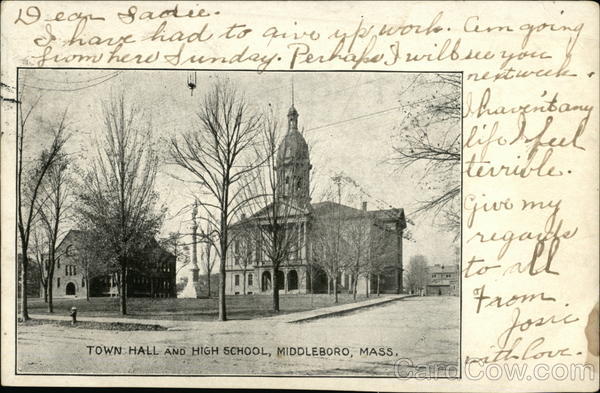 Dear Sadie.
I have had to give up work. Am going
from here Sunday. Perhaps I will see you
next week.
I haven't any
life I feel
terrible.
Give my
regards
to all
From
Josie
with love.
TOWN HALL AND HIGH SCHOOL, MIDDLEBORO, MASS.
CardCow.com